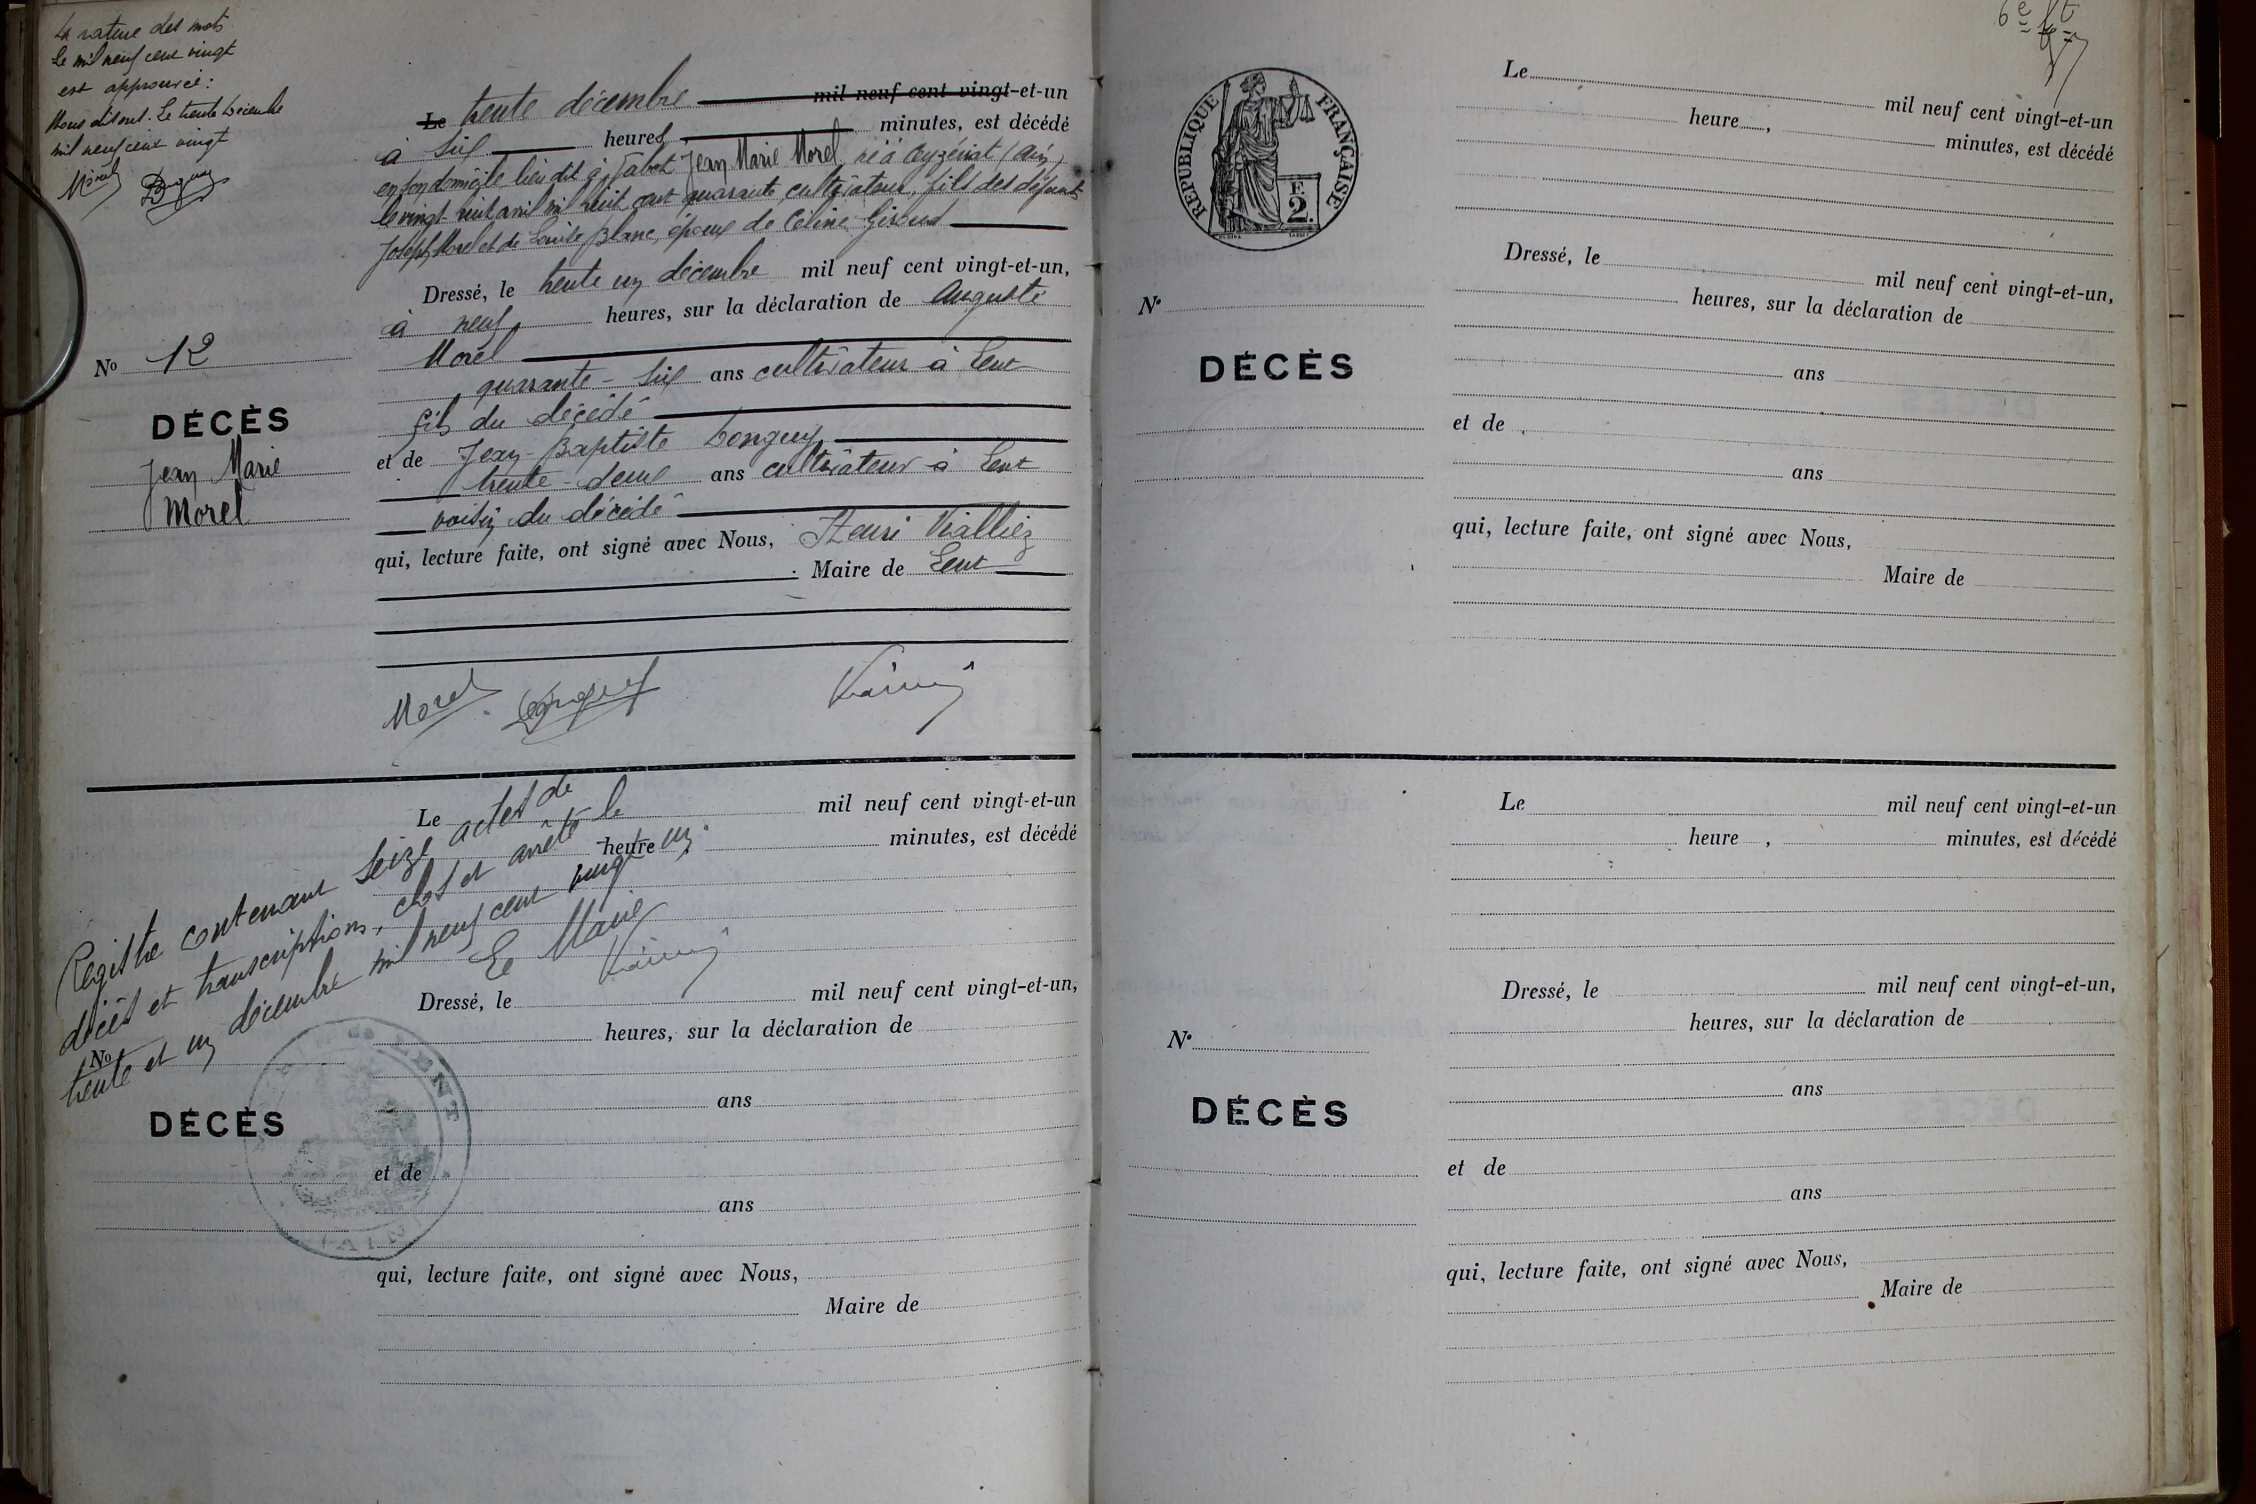 La rature des mots
Le mil neuf cent vingt
est approuvée :
Nous disons. Le trente décembre
mil neuf cent vingt
Morel
Le trente décembre mil neuf cent vingt-et-un
à six heures minutes, est décédé
en son domicile lieu dit Jean Marie Morel né à Ceyzériat (Ain)
le vingt huit avril mil huit cent quarante, cultivateur, fils des défunts
Joseph Morel et de Louise Blanc, époux de Céline Giroud
Dressé, le trente un décembre mil neuf cent vingt-et-un,
à neuf heures, sur la déclaration de Auguste
Morel
quarante-six ans cultivateur à Lent
fils du décédé
et de Jean-Baptiste Longuy
trente-deux ans cultivateur à Lent
voisin du décédé
qui, lecture faite, ont signé avec Nous, Henri
Maire de Lent
Morel
No 12
DÉCÈS
Jean Marie
Morel
Le mil neuf cent vingt-et-un
heure minutes, est décédé
Registre contenant seize actes de
décès et transcriptions, clos et arrêté le
trente et un décembre mil neuf cent vingt un.
Le Maire
Dressé, le mil neuf cent vingt-et-un,
heures, sur la déclaration de
No
DÉCÈS
LENT
(AIN)
ans
et de
ans
qui, lecture faite, ont signé avec Nous,
Maire de
6e ft
RÉPUBLIQUE FRANÇAISE
F.
2.
Le mil neuf cent vingt-et-un
heure , minutes, est décédé
Dressé, le mil neuf cent vingt-et-un,
heures, sur la déclaration de
N°
DÉCÈS
ans
et de
ans
qui, lecture faite, ont signé avec Nous,
Maire de
Le mil neuf cent vingt-et-un
heure , minutes, est décédé
Dressé, le mil neuf cent vingt-et-un,
heures, sur la déclaration de
N°
DÉCÈS
ans
et de
ans
qui, lecture faite, ont signé avec Nous,
Maire de